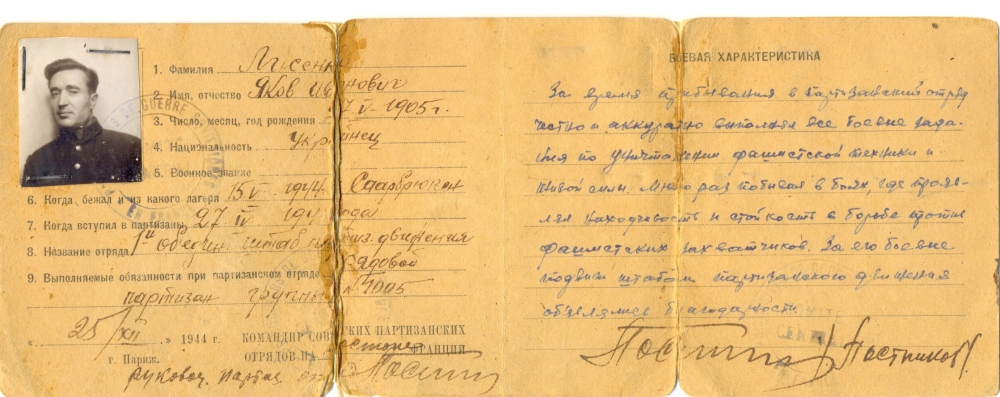 1. Фамилия Лысенко
2. Имя, отчество Яков Иванович
3. Число, месяц, год рождения 1905 г.
4. Национальность украинец
5. Военное звание
6. Когда бежал и из какого лагеря 15 VI 1944 Саарбрюкен
7. Когда вступил в партизаны 27 года
8. Название отряда штаб партиз. движения
9. Выполняемые обязнности при партизанском отряде Рядовой
партизан группы № 4005
„25/XII“ 1944 г.
г. Париж.
КОМАНДИР СОВЕТСКИХ ПАРТИЗАНСКИХ
ОТРЯДОВ НА ФРАНЦИИ
БОЕВАЯ ХАРАКТЕРИСТИКА
За время пребывания в партизанский отряд
честно и аккуратно выполнял все боевые зада-
ния по уничтожении фашистской техники и
живой силы. Много раз побывал в боях, где прояв-
лял находчивость и стойкость в борьбе против
фашистских захватчиков. За его боевые
подвиги штабом партизанского движения
объявлялись благодарности.
Постников